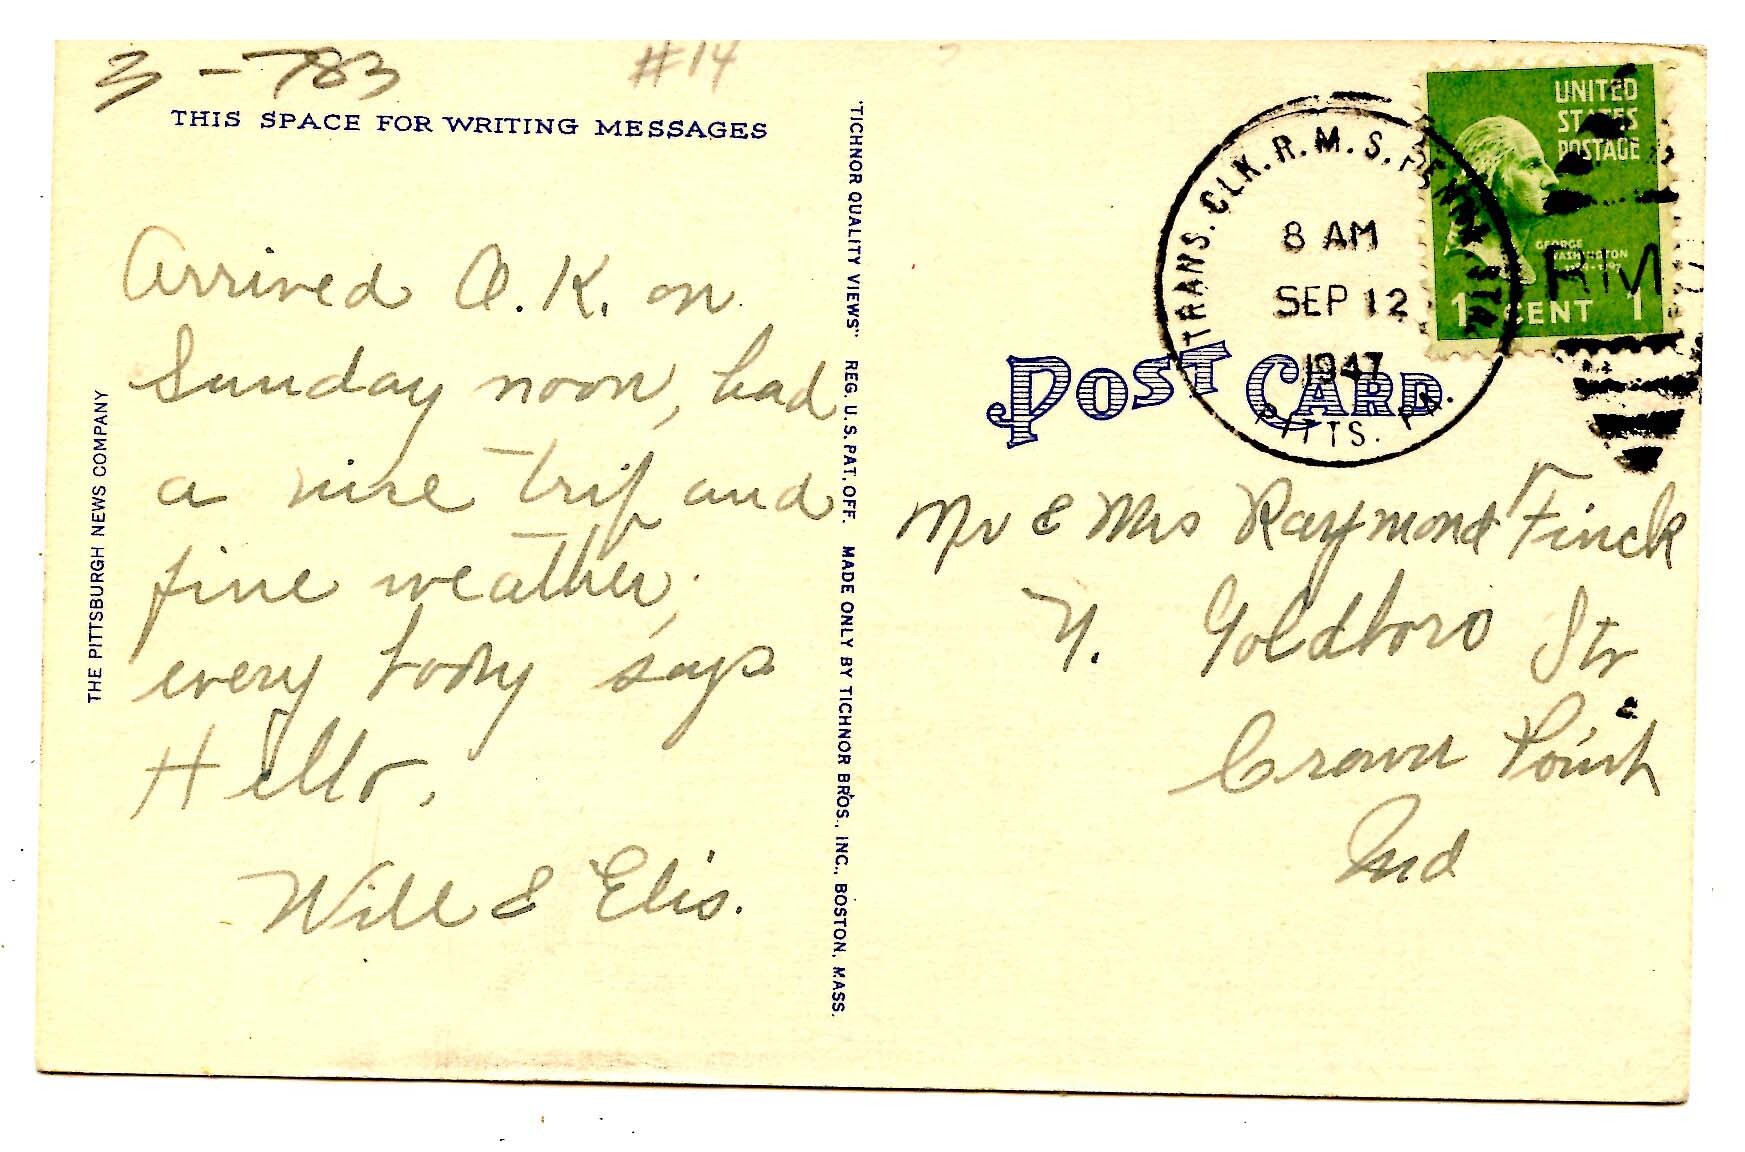 3 - 783
#14
THIS SPACE FOR WRITING MESSAGES
Arrived O.K. on
Sunday noon, had
a nice trip and
fine weather,
every body says
Hello,
Will & Elis.
THE PITTSBURGH NEWS COMPANY
"TICHNOR QUALITY VIEWS" REG. U.S. PAT. OFF. MADE ONLY BY TICHNOR BROS., INC., BOSTON, MASS.
TRANS. CLK. R.M.S. PENNA. STA.
8 AM
SEP 12
1947
PITTS. PA.
UNITED
STATES
POSTAGE
GEORGE
WASHINGTON
1 CENT 1
RM
POST CARD
Mr & Mrs Raymond Finck
N. Goldboro Str
Crown Point
Ind